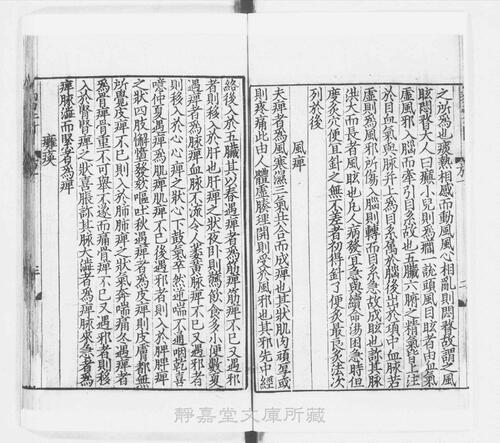 之所為也痰熱相感而動風風心相亂則悶瞀故謂之風
眩悶瞀大人曰癲小兒則為癇一說頭風目眩者由血氣
虛風邪入腦而牽引目系故也五臟六腑之精氣皆上注
於目血氣與脉并上為目系屬於腦後出於項中血脉若
虛則為風邪所傷入腦則轉而目系急故成眩也診其脉
洪大而長者風眩也凡人病發宜急與續命湯困急時但
度灸穴便宜針之無不差者初得針了便灸最良灸法次
列於後
風痺
夫痺者為風寒濕三氣共合而成痺也其狀肌肉頑厚或
則疼痛此由人體虛腠理開則受於風邪也其邪先中經
絡後入於五臟其以春遇痺者為筋痺筋痺不已又遇邪
者則移入於肝也肝痺之狀夜卧則驚飲食多小便數夏
遇痺者為脉痺血脉不流令人萎黃脉痺不已又遇邪
則移入於心心痺之狀心下鼓氣卒然逆喘不通咽乾喜
噫仲夏遇痺為肌痺肌痺不已後遇邪者則入於脾脾痺
之狀四肢懈墮發欬嘔吐秋遇痺者為皮痺則皮膚都無
所覺皮痺不已則入於肺肺痺之狀氣奔喘痛冬遇痺者
為骨痺骨重不可舉不遂而痛骨痺不已又遇邪者則移
入於腎腎痺之狀喜脹診其脉大濇者為痺脉來急者為
痺脉濇而緊者為痺
癱瘓
靜嘉堂文庫所藏